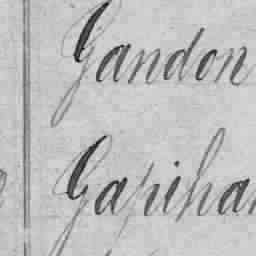 Gandon
Gapihan